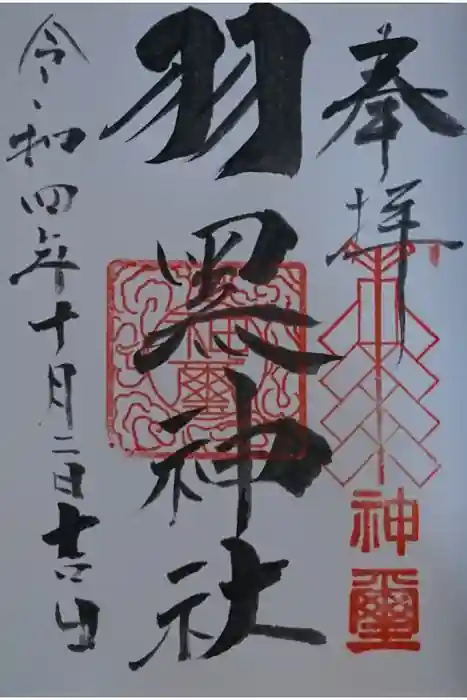 奉拝
神璽
羽黒神社
神璽
令和四年十月二日吉日